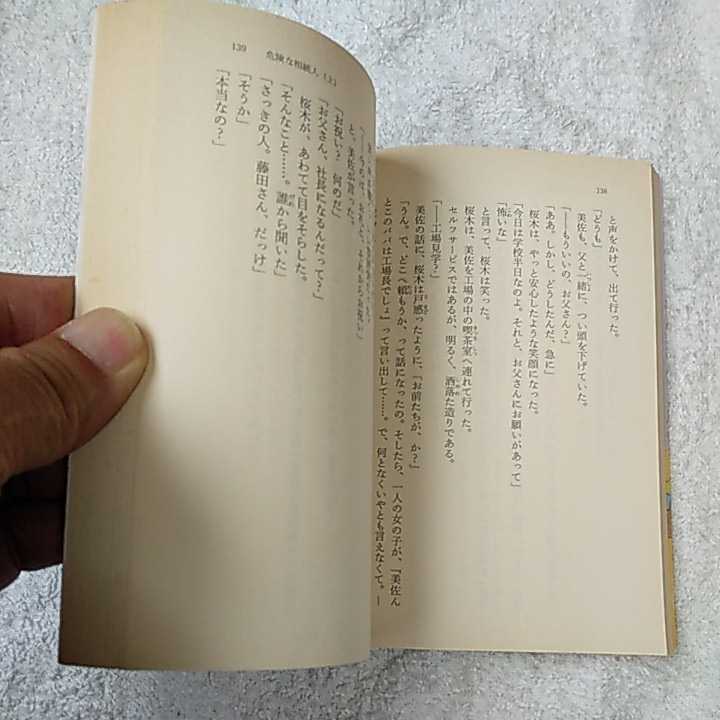 138
と声をかけて、出て行った。
「どうも」
美佐も、父と一緒に、つい頭を下げていた。
「――もういいの、お父さん？」
「ああ。しかし、どうしたんだ、急に」
桜木は、やっと安心したような笑顔になった。
「今日は学校半日なのよ。それと、お父さんにお願いがあって」
「怖いな」
と言って、桜木は笑った。
桜木は、美佐を工場の中の喫茶室へ連れて行った。
セルフサービスではあるが、明るく、洒落た造りである。
「――工場見学？」
美佐の話に、桜木は戸惑ったように、「お前たちが、か？」
「うん。で、どこへ頼もうか、って話になったの。そしたら、一人の女の子が、『美佐ん
とこのパパは工場長でしょ』って言い出して……。で、何となくいやとも言えなくて。―
139 危険な相続人（上）
それからお祝い」
と、美佐が言った。
「お祝い？　何のだ」
「お父さん、社長になるんだって？」
桜木が、あわてて目をそらした。
「そんなこと……。誰から聞いた」
「さっきの人。藤田さん、だっけ」
「そうか」
「本当なの？」